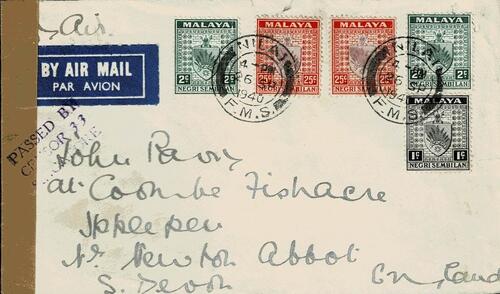 Air
BY AIR MAIL
PAR AVION
MALAYA
2c 2c
NEGRI SEMBILAN
MALAYA
25c 25c
NEGRI SEMBILAN
MALAYA
25c 25c
NEGRI SEMBILAN
MALAYA
2c 2c
NEGRI SEMBILAN
MALAYA
1c 1c
NEGRI SEMBILAN
NILAI
1940
F.M.S.
NILAI
1940
F.M.S.
PASSED BY
CENSOR 73
SINGAPORE
John
at Coombe Fishacre
Ipplepen
Nr Newton Abbot
S. Devon England